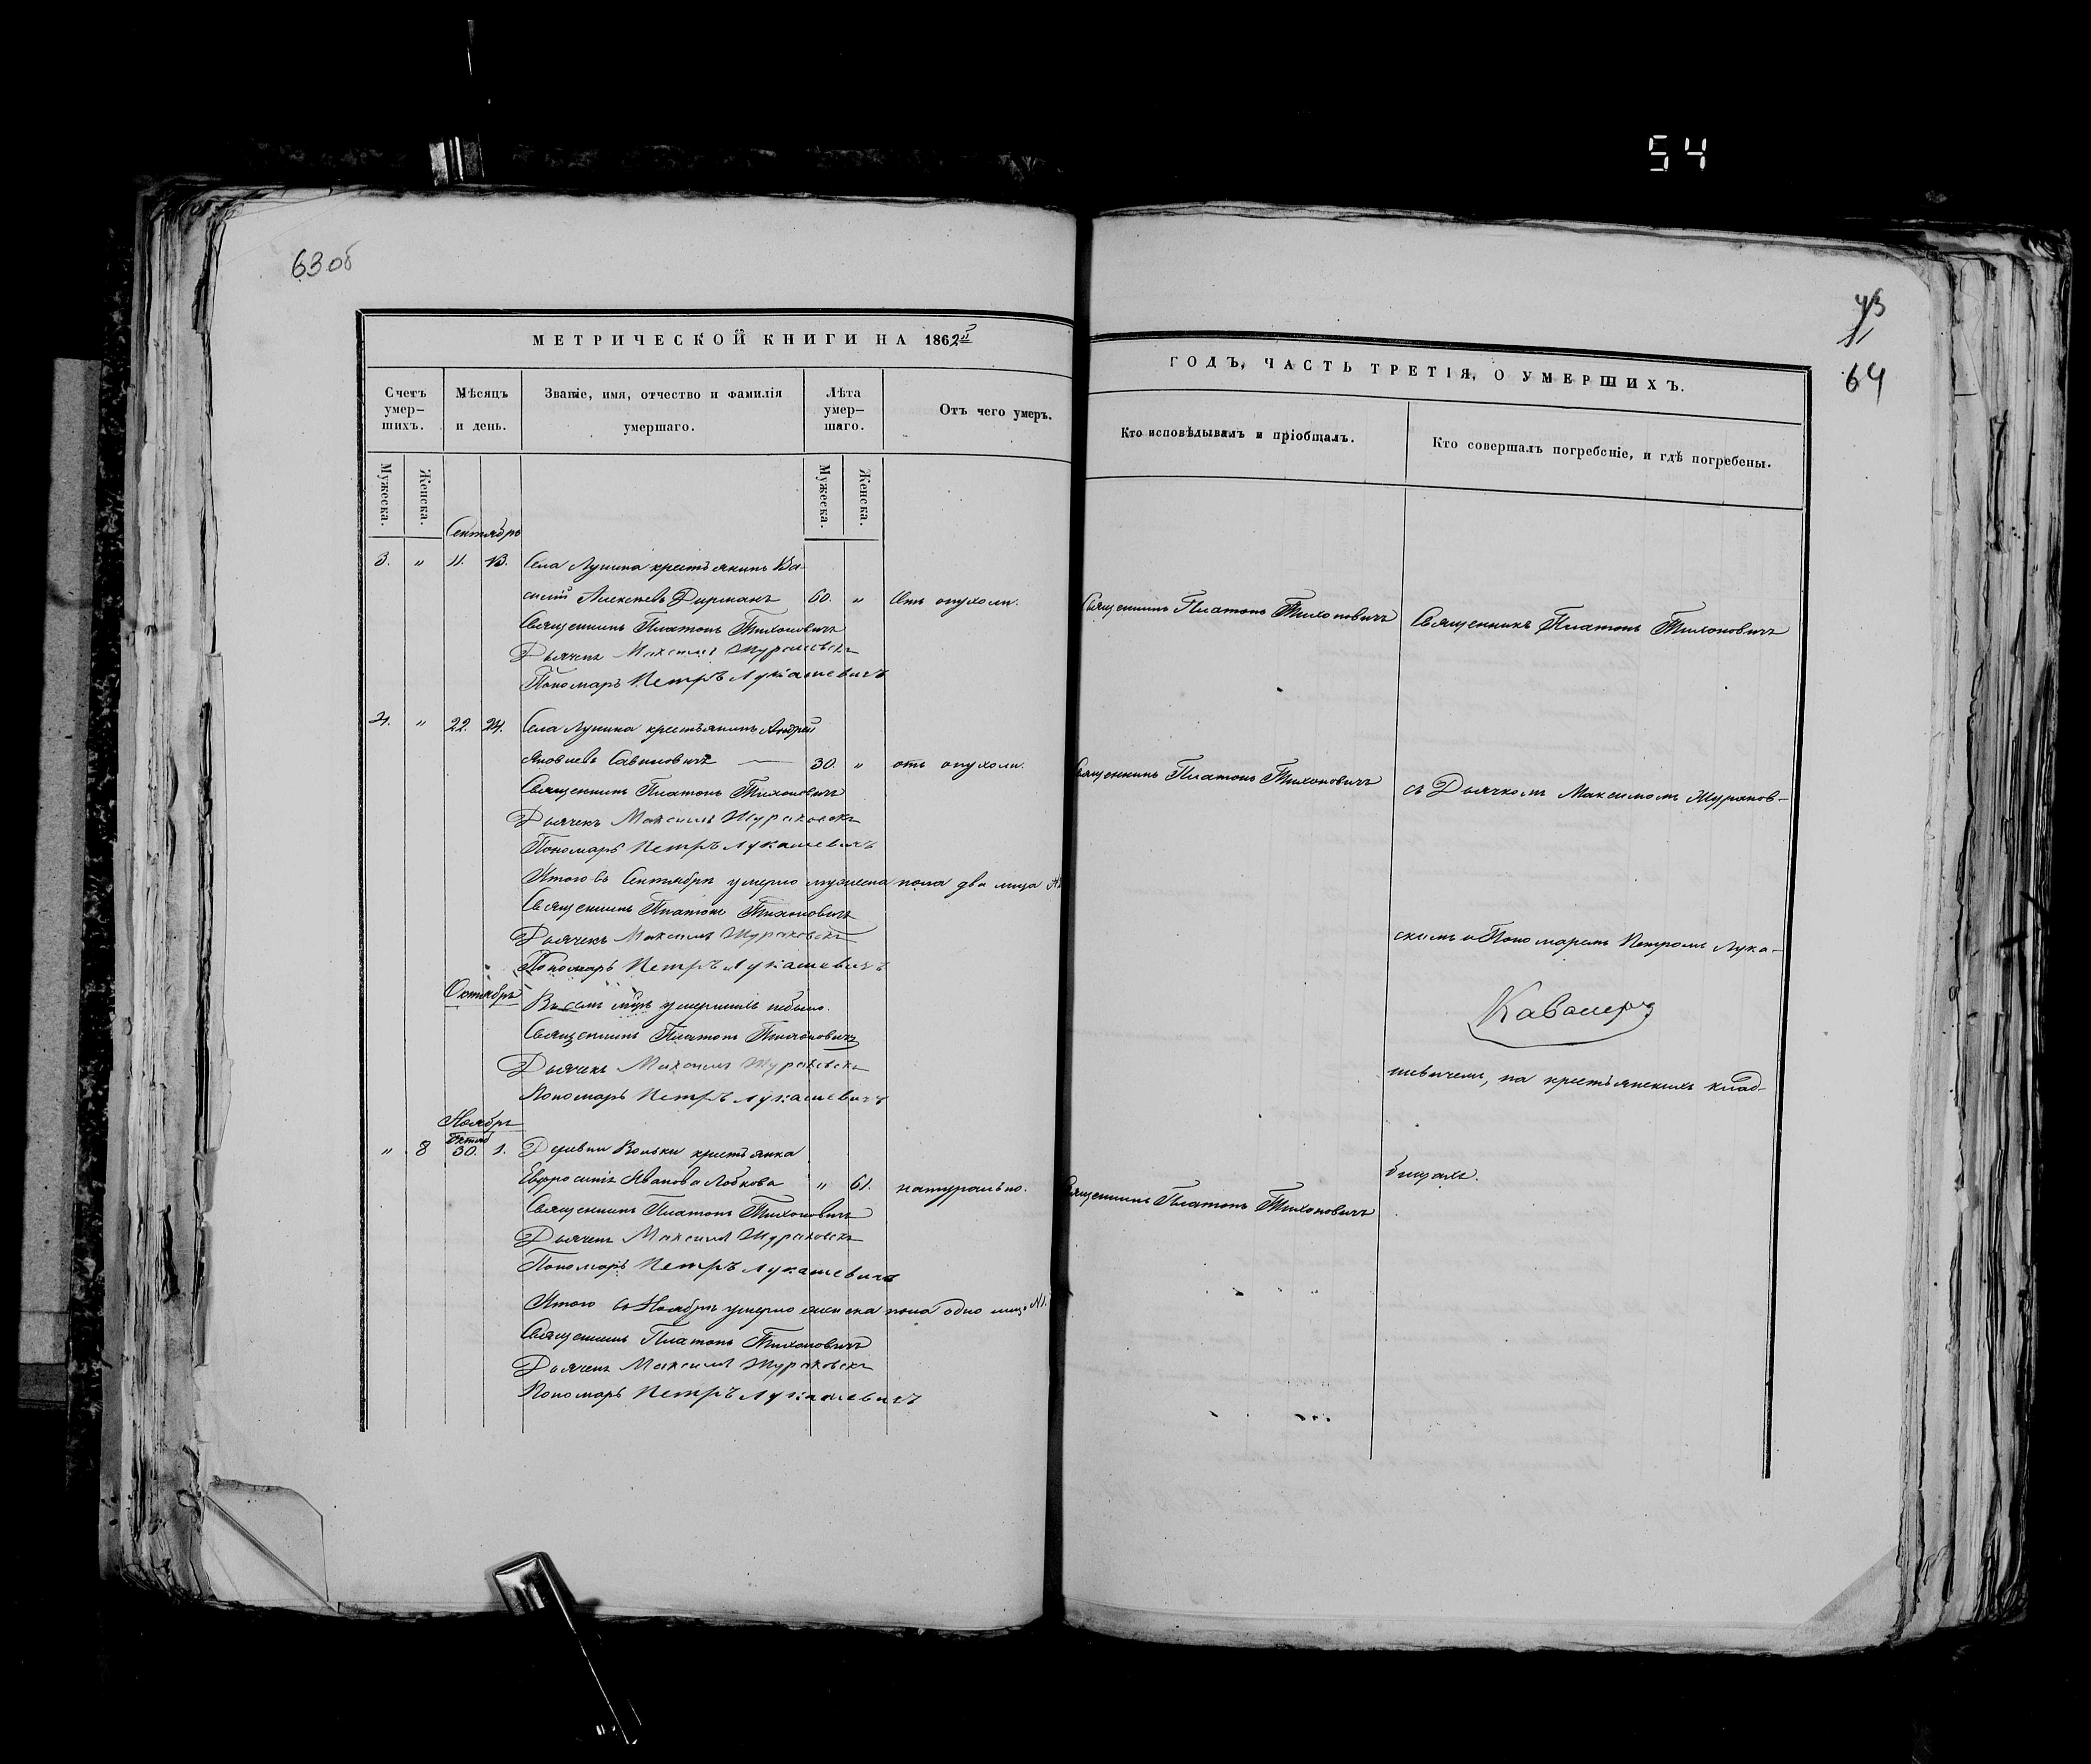 54
63 об
43
64
МЕТРИЧЕСКОЙ КНИГИ НА 1862й
ГОДЪ, ЧАСТЬ ТРЕТІЯ, О УМЕРШИХЪ.
Счетъ умер-
шихъ.
Мѣсяцъ
и день.
Званіе, имя, отчество и фамилія
умершаго.
Лѣта
умер-
шаго.
Отъ чего умеръ.
Кто исповѣдывалъ и пріобщалъ.
Кто совершалъ погребеніе, и гдѣ погребены.
Мужеска.
Женска.
Мужеска.
Женска.
Сентябрь
3. " 11. 13. Села Лунина крестьянинъ Ва-
силій Алексѣевъ Дирманъ 60. " Отъ опухоли. Священникъ Платонъ Тихоновичъ Священникъ Платонъ Тихоновичъ
Священникъ Платонъ Тихоновичъ
Дьячекъ Максимъ
Пономарь Петръ Лукашевичъ
4. " 22. 24. Села Лунина крестьянинъ Андрей
Яковлевъ Савиновичъ — 30. " отъ опухоли. Священникъ Платонъ Тихоновичъ съ Дьячкомъ Максимомъ
Священникъ Платонъ Тихоновичъ
Дьячекъ Максимъ
Пономарь Петръ Лукашевичъ
Итого въ Сентябрѣ умерло мужеска пола два лица
Священникъ Платонъ Тихоновичъ
Дьячекъ Максимъ
скимъ и Пономаремъ Петромъ Лука-
Пономарь Петръ Лукашевичъ
Октябрь
Въ семъ м-цѣ умершихъ небыло.
Священникъ Платонъ Тихоновичъ
Дьячекъ Максимъ
шевичемъ, на крестьянскихъ клад-
Пономарь Петръ Лукашевичъ
Ноябрь
Октяб
" 8 30. 1. Деревни Вольки крестьянка
Евфросинія Иванова Лобкова " 61. натурально. Священникъ Платонъ Тихоновичъ бищахъ.
Священникъ Платонъ Тихоновичъ
Дьячекъ Максимъ
Пономарь Петръ Лукашевичъ
Итого въ Ноябрѣ умерло женска пола одно лицо №1.
Священникъ Платонъ Тихоновичъ
Дьячекъ Максимъ
Пономарь Петръ Лукашевичъ